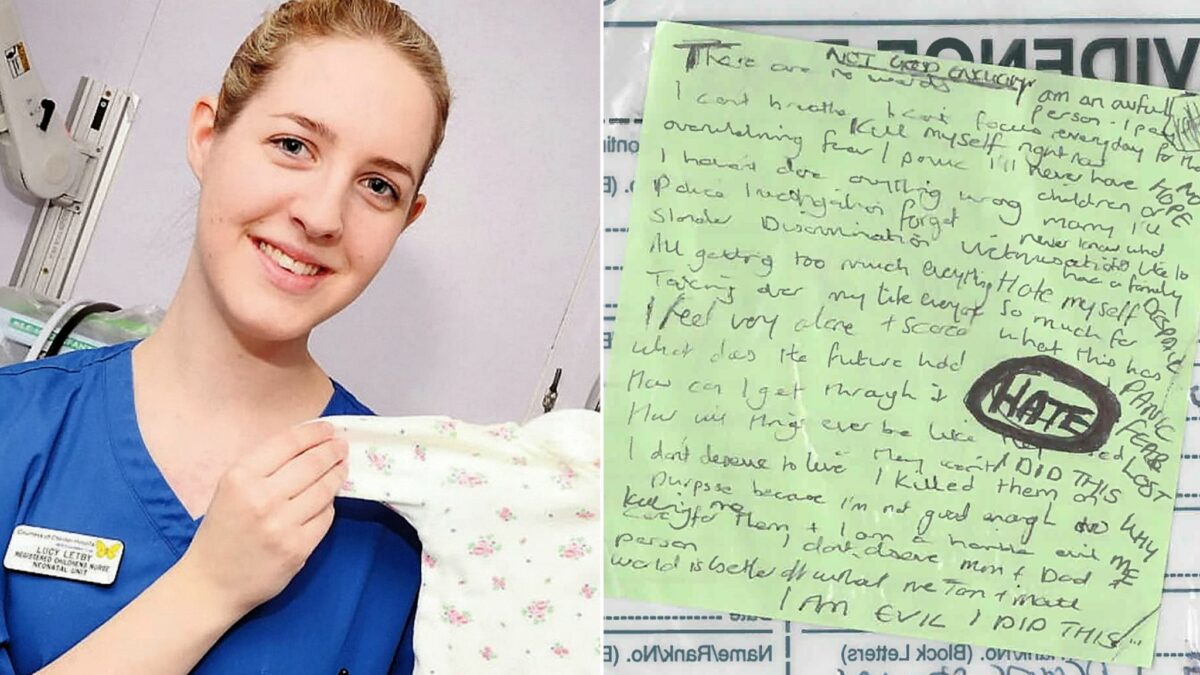 Countess of Chester Hospital
LUCY LETBY
REGISTERED CHILDRENS NURSE
NEONATAL UNIT
VIDENCE
NOT GOOD ENOUGH
There are no words
am an awful
person - I pay
I can't breathe I can't focus everyday for that
Kill myself right now
overwhelming fear / panic I'll never have
NO
HOPE
I haven't done anything wrong
children or
marry I'll
Police investigation forget
never know what
Slander Discrimination Victimisation
like to
have a family
All getting too much everything
Hate myself
DESPAIR
Taking over my life everyone
so much for
what this has
I feel very alone + scared
What does the future hold
PANIC
FEAR
LOST
HATE
How can I get through it
How will things ever be like
They won't
I DID THIS
I don't deserve to live
I killed them on
purpose because I'm not good enough
WHY
ME
killing me
care for them + I am a horrible evil
person
I don't deserve mum + Dad
world is better off without me
I AM EVIL I DID THIS
Date
Name/Rank/No.
Rank/No. (Block Letters)